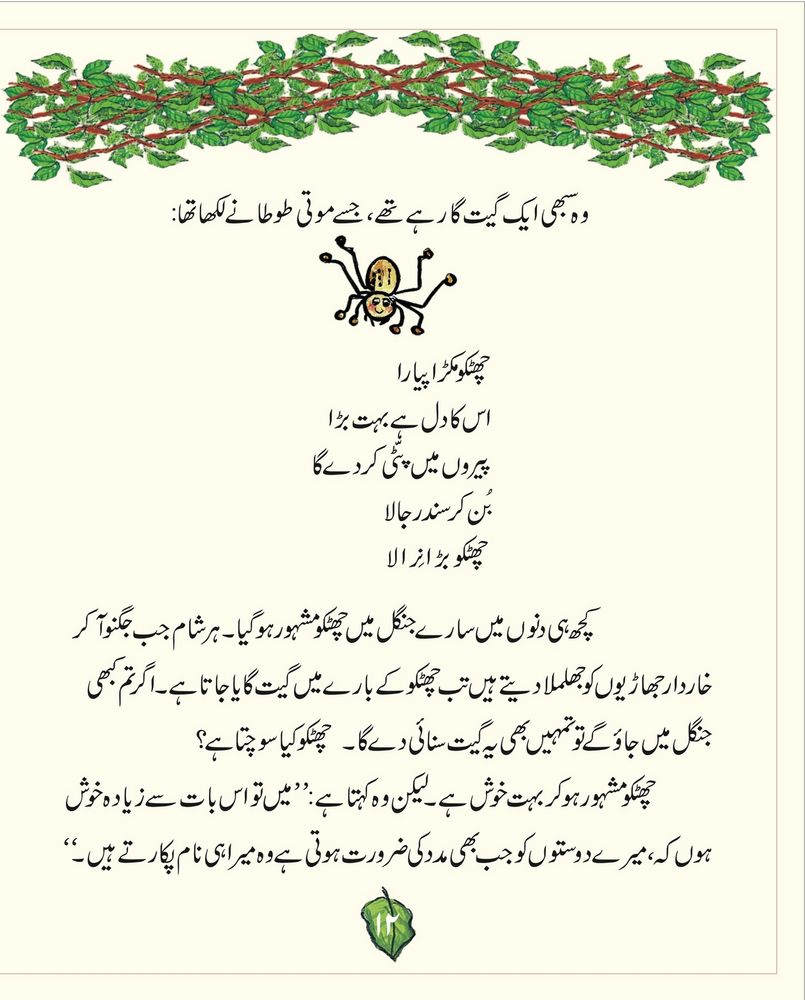 وہ سبھی ایک گیت گا رہے تھے، جسے موتی طوطا نے لکھا تھا:
چھٹکو مکڑا پیارا
اس کا دل ہے بہت بڑا
پیروں میں پٹّی کر دے گا
بُن کر سندر جالا
چھٹکو بڑا نِرالا
کچھ ہی دنوں میں سارے جنگل میں چھٹکو مشہور ہو گیا۔ ہر شام جب جگنو آ کر
خاردار جھاڑیوں کو جھلملا دیتے ہیں تب چھٹکو کے بارے میں گیت گایا جاتا ہے۔ اگر تم کبھی
جنگل میں جاؤ گے تو تمہیں بھی یہ گیت سنائی دے گا۔ چھٹکو کیا سوچتا ہے؟
چھٹکو مشہور ہو کر بہت خوش ہے۔ لیکن وہ کہتا ہے: ’’میں تو اس بات سے زیادہ خوش
ہوں کہ، میرے دوستوں کو جب بھی مدد کی ضرورت ہوتی ہے وہ میرا ہی نام پکارتے ہیں۔‘‘
۱۲